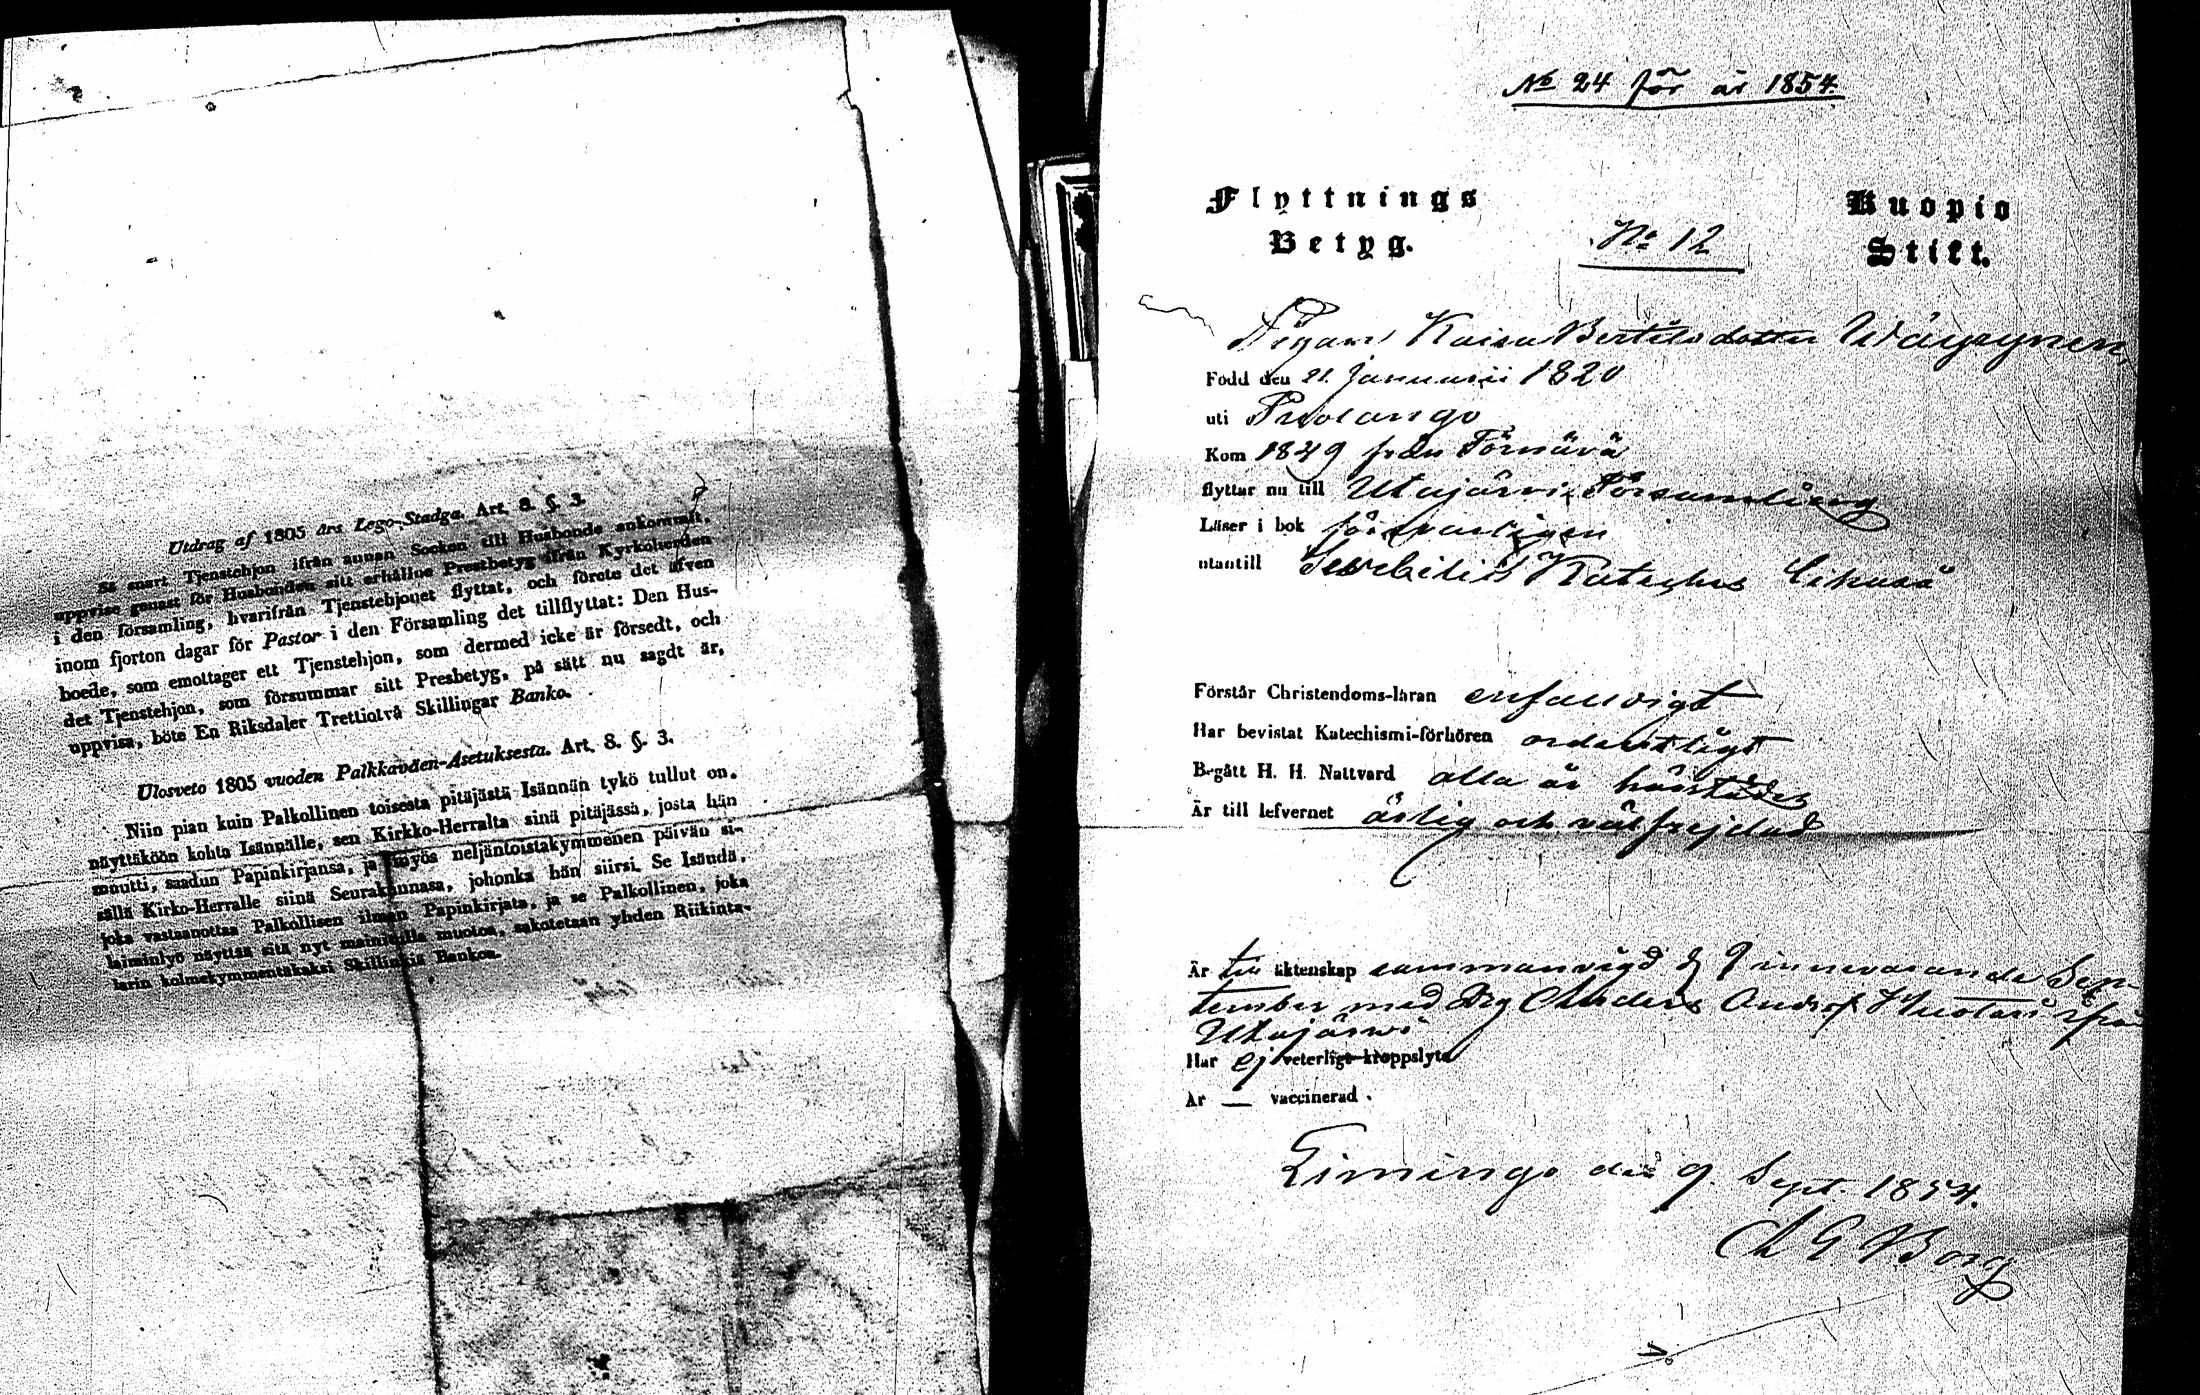 Utdrag af 1805 års Lego-Stadga. Art. 8. §. 3.
Så snart Tjenstehjon ifrån annan Socken till Husbonde ankommit,
uppvise genast för Husbonden sitt erhållne Prestbetyg ifrån Kyrkoherden
i den församling, hvarifrån Tjenstehjonet flyttat, och förete det äfven
inom fjorton dagar för Pastor i den Församling det tillflyttat: Den Hus-
boede, som emottager ett Tjenstehjon, som dermed icke är försedt, och
det Tjenstehjon, som försummar sitt Presbetyg, på sätt nu sagdt är,
uppvisa, böte En Riksdaler Trettiotvå Skillingar Banko.
Ulosveto 1805 vuoden Palkkaväen-Asetuksesta. Art. 8. §. 3.
Niin pian kuin Palkollinen toisesta pitäjästä Isännän tykö tullut on,
näyttäköön kohta Isännälle, sen Kirkko-Herralta sinä pitäjässä, josta hän
muutti, saadun Papinkirjansa, ja myös neljäntoistakymmenen päivän si-
sällä Kirko-Herralle siinä Seurakunnasa, johonka hän siirsi. Se Isändä,
joka vastaanottaa Palkollisen ilman Papinkirjata, ja se Palkollinen, joka
laiminlyö näyttää sitä nyt mainitulla muotoa, sakotetaan yhden Riikinta-
larin kolmekymmentäkaksi Skillinkiä Bankoa.
No 24 för år 1854.
Flyttnings
Betyg.
No 12
Kuopio
Stift.
Pigan Kaisa Bertilsdotter Wäyrynen,
Född den 21 Januarii 1820
uti Puolango
Kom 1849 från
flyttar nu till Utajärvi Församling
Läser i bok försvarligen
utantill
Förstår Christendoms-läran enfaldigt
Har bevistat Katechismi-förhören ordentligt
Begått H. H. Nattvard alla år
Är till lefvernet ärlig och välfrejdad
Är till äktenskap sammanvigd d 9 innevarande Sep-
tember med Drg Anders Andersf Huotari ifrån
Utajärwi
Har ej veterligt kroppslyte
Är — vaccinerad.
Limingo den 9. Sept. 1854.
Borg